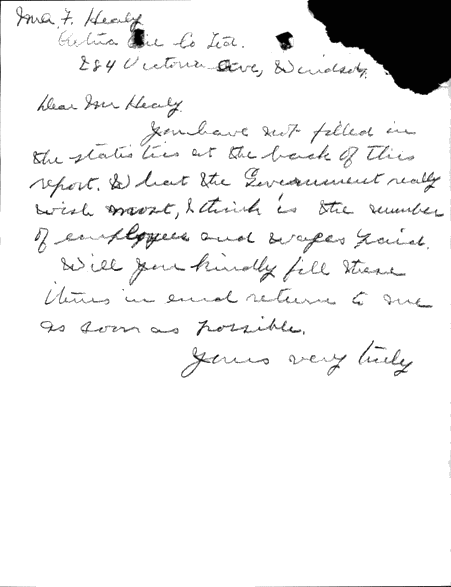 Mr. F. Healy
Aetna Oil Co Ltd.
284 Victoria Ave, Windsor,
Dear Mr Healy
You have not filled in
the statistics at the back of this
report. What the Government really
wish most, I think is the number
of employees and wages paid.
Will you kindly fill these
items in and return to me
as soon as possible.
Yours very truly